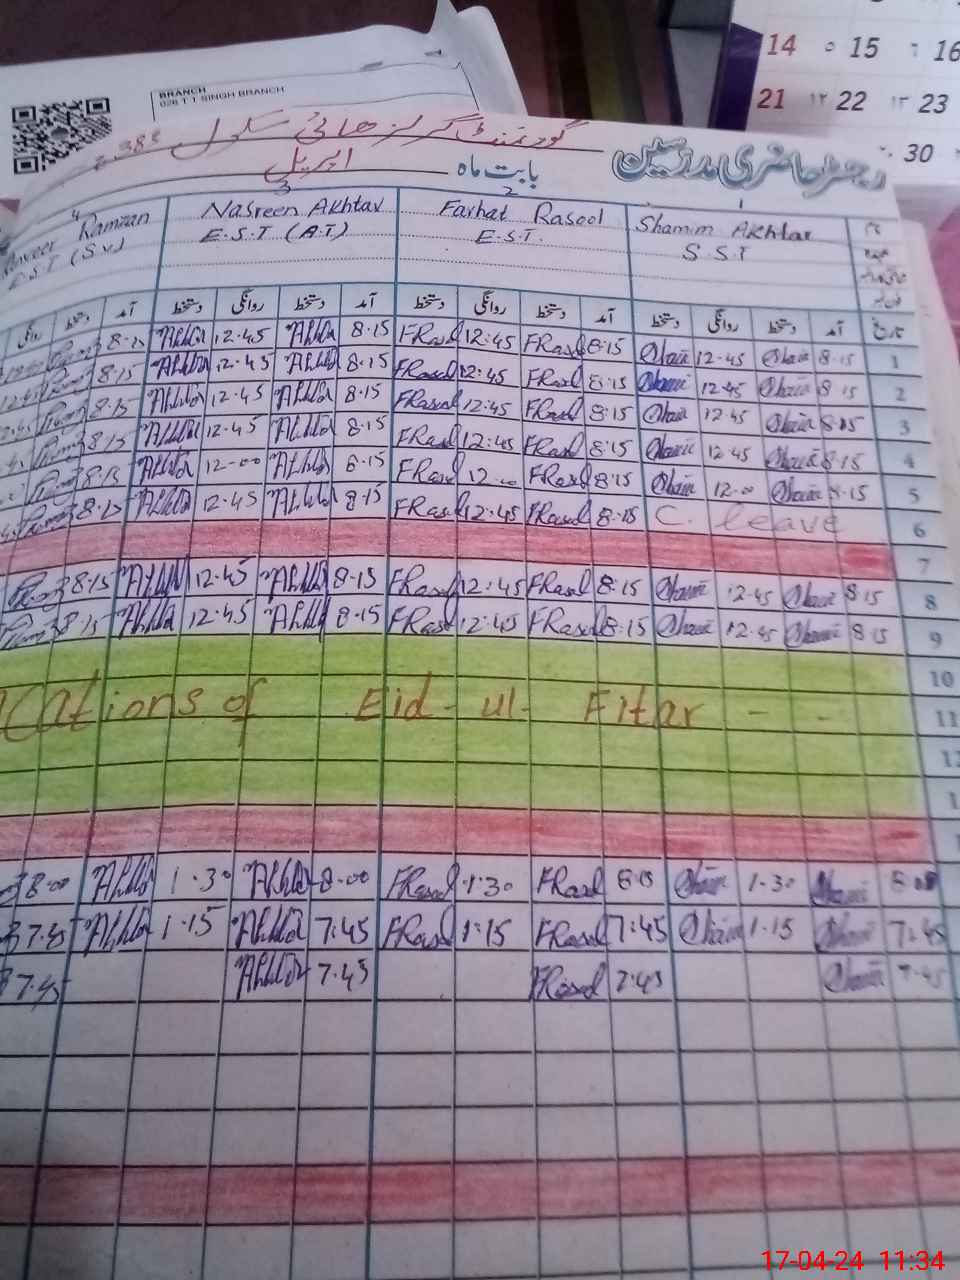 14 ۵ 15 ٦ 16
21 ۱۲ 22 ۱۳ 23
30
BRANCH
026 T T SINGH BRANCH
گورنمنٹ گرلز ھائی سکول 385
رجسٹر حاضری مدرسین بابت ماہ اپریل
1 2 3 4
Shamim Akhtar Farhat Rasool Nasreen Akhtar Ramzan
S.S.T E.S.T. E.S.T (A.T) E.S.T (S.V)
تاریخ آمد دستخط روانگی دستخط آمد دستخط روانگی دستخط آمد دستخط روانگی دستخط آمد دستخط روانگی
Akhtar 12.45 Akhtar 8.15 FRasool 12:45 FRasool 8.15 Sham 12.45 Sham 8.15 1
8.15 Akhtar 12.45 Akhtar 8.15 FRasool 12:45 FRasool 8.15 Sham 12.45 Sham 8.15 2
8.15 Akhtar 12.45 Akhtar 8.15 FRasool 12.45 FRasool 8.15 Sham 12.45 Sham 8.15 3
8.15 Akhtar 12.45 Akhtar 8.15 FRasool 12:45 FRasool 8.15 Sham 12.45 Sham 8.15 4
8.15 Akhtar 12-00 Akhtar 8.15 FRasool 12.00 FRasool 8.15 Sham 12.00 Sham 8.15 5
8.15 Akhtar 12.45 Akhtar 8.15 FRasool 12.45 FRasool 8.15 C. leave 6
7
8.15 Akhtar 12.45 Akhtar 8.15 FRasool 12:45 FRasool 8.15 Sham 12.45 Sham 8.15 8
8.15 Akhtar 12.45 Akhtar 8.15 FRasool 12:45 FRasool 8.15 Sham 12.45 Sham 8.15 9
10
cations of Eid-ul-Fitar - - 11
8.00 Akhtar 1.30 Akhtar 8.00 FRasool 1.30 FRasool Sham 1.30 Sham
7.45 Akhtar 1.15 Akhtar 7.45 FRasool 1:15 FRasool 7.45 Sham 1.15 Sham 7.45
7.45 Akhtar 7.45 FRasool 7.45 Sham 7.45
17-04-24 11:34